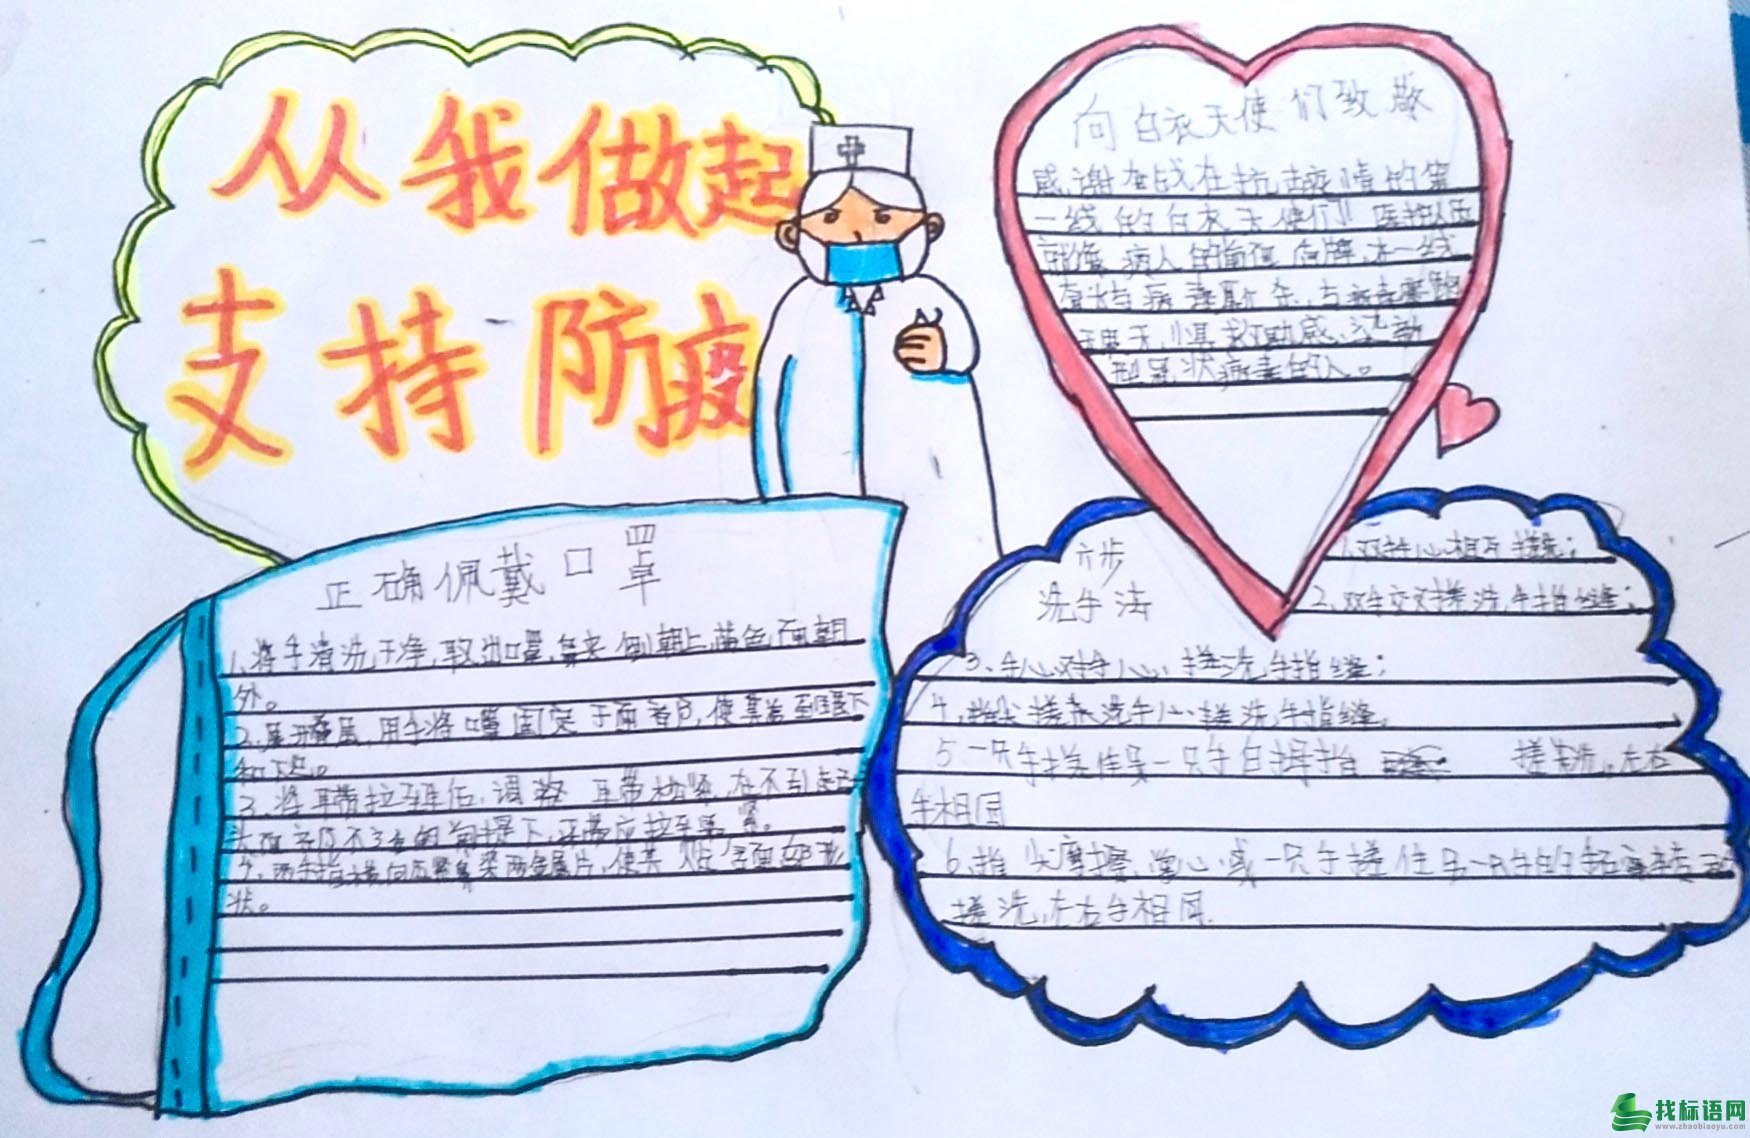 从我做起
支持防疫
向白衣天使们致敬
感谢奋战在抗击疫情的第
一线的白衣天使们!! 医护人员
就像病人的 盾牌,在一线
与病毒 杀,与病毒赛跑
状病毒的人。
正确佩戴口罩
1、将手清洗干净,取出口罩,鼻夹侧朝上,蓝色面朝
外。
2、展开 用手将口罩固定于面 部,使其 至
和下巴。
3、将耳带拉至耳后,调整耳带松紧,在不引起
头面部及不 的前提下,耳带应拉至最紧。
4、两手指横向 鼻梁两 金属片,使其 面部形
状。
六步
洗手法
1、双手心相互搓洗;
2、双手交叉搓洗手指缝;
3、手心对手心搓洗手指缝;
4、指尖搓 洗手心,搓洗手指缝。
5、一只手搓住另一只手的拇指 搓洗,左右
手相同
6、指尖摩擦掌心或一只手搓住另一只手的
搓洗,左右手相同.
找标语网
www.zhaobiaoyu.com